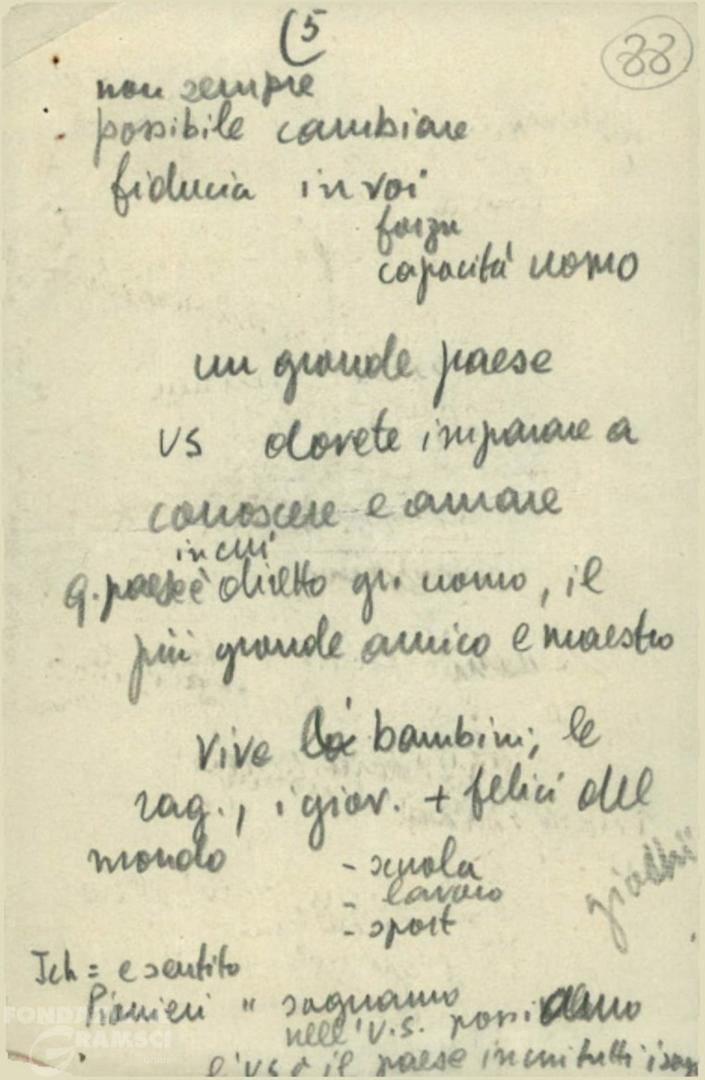 (5
88
non sempre
possibile cambiare
fiducia in voi
forza
capacità uomo
un grande paese
US dovete imparare a
conoscere e amare
in cui
g. paese è diretto gr. uomo, il
più grande amico e maestro
vive là bambini, le
rag., i giov. + felici del
mondo
- scuola
- lavoro
- sport
= e sentito
Pionieri " sogniamo
nell'U.S. possiedono
l'US è il paese in cui tutti i sogn
FONDAZIONE
GRAMSCI